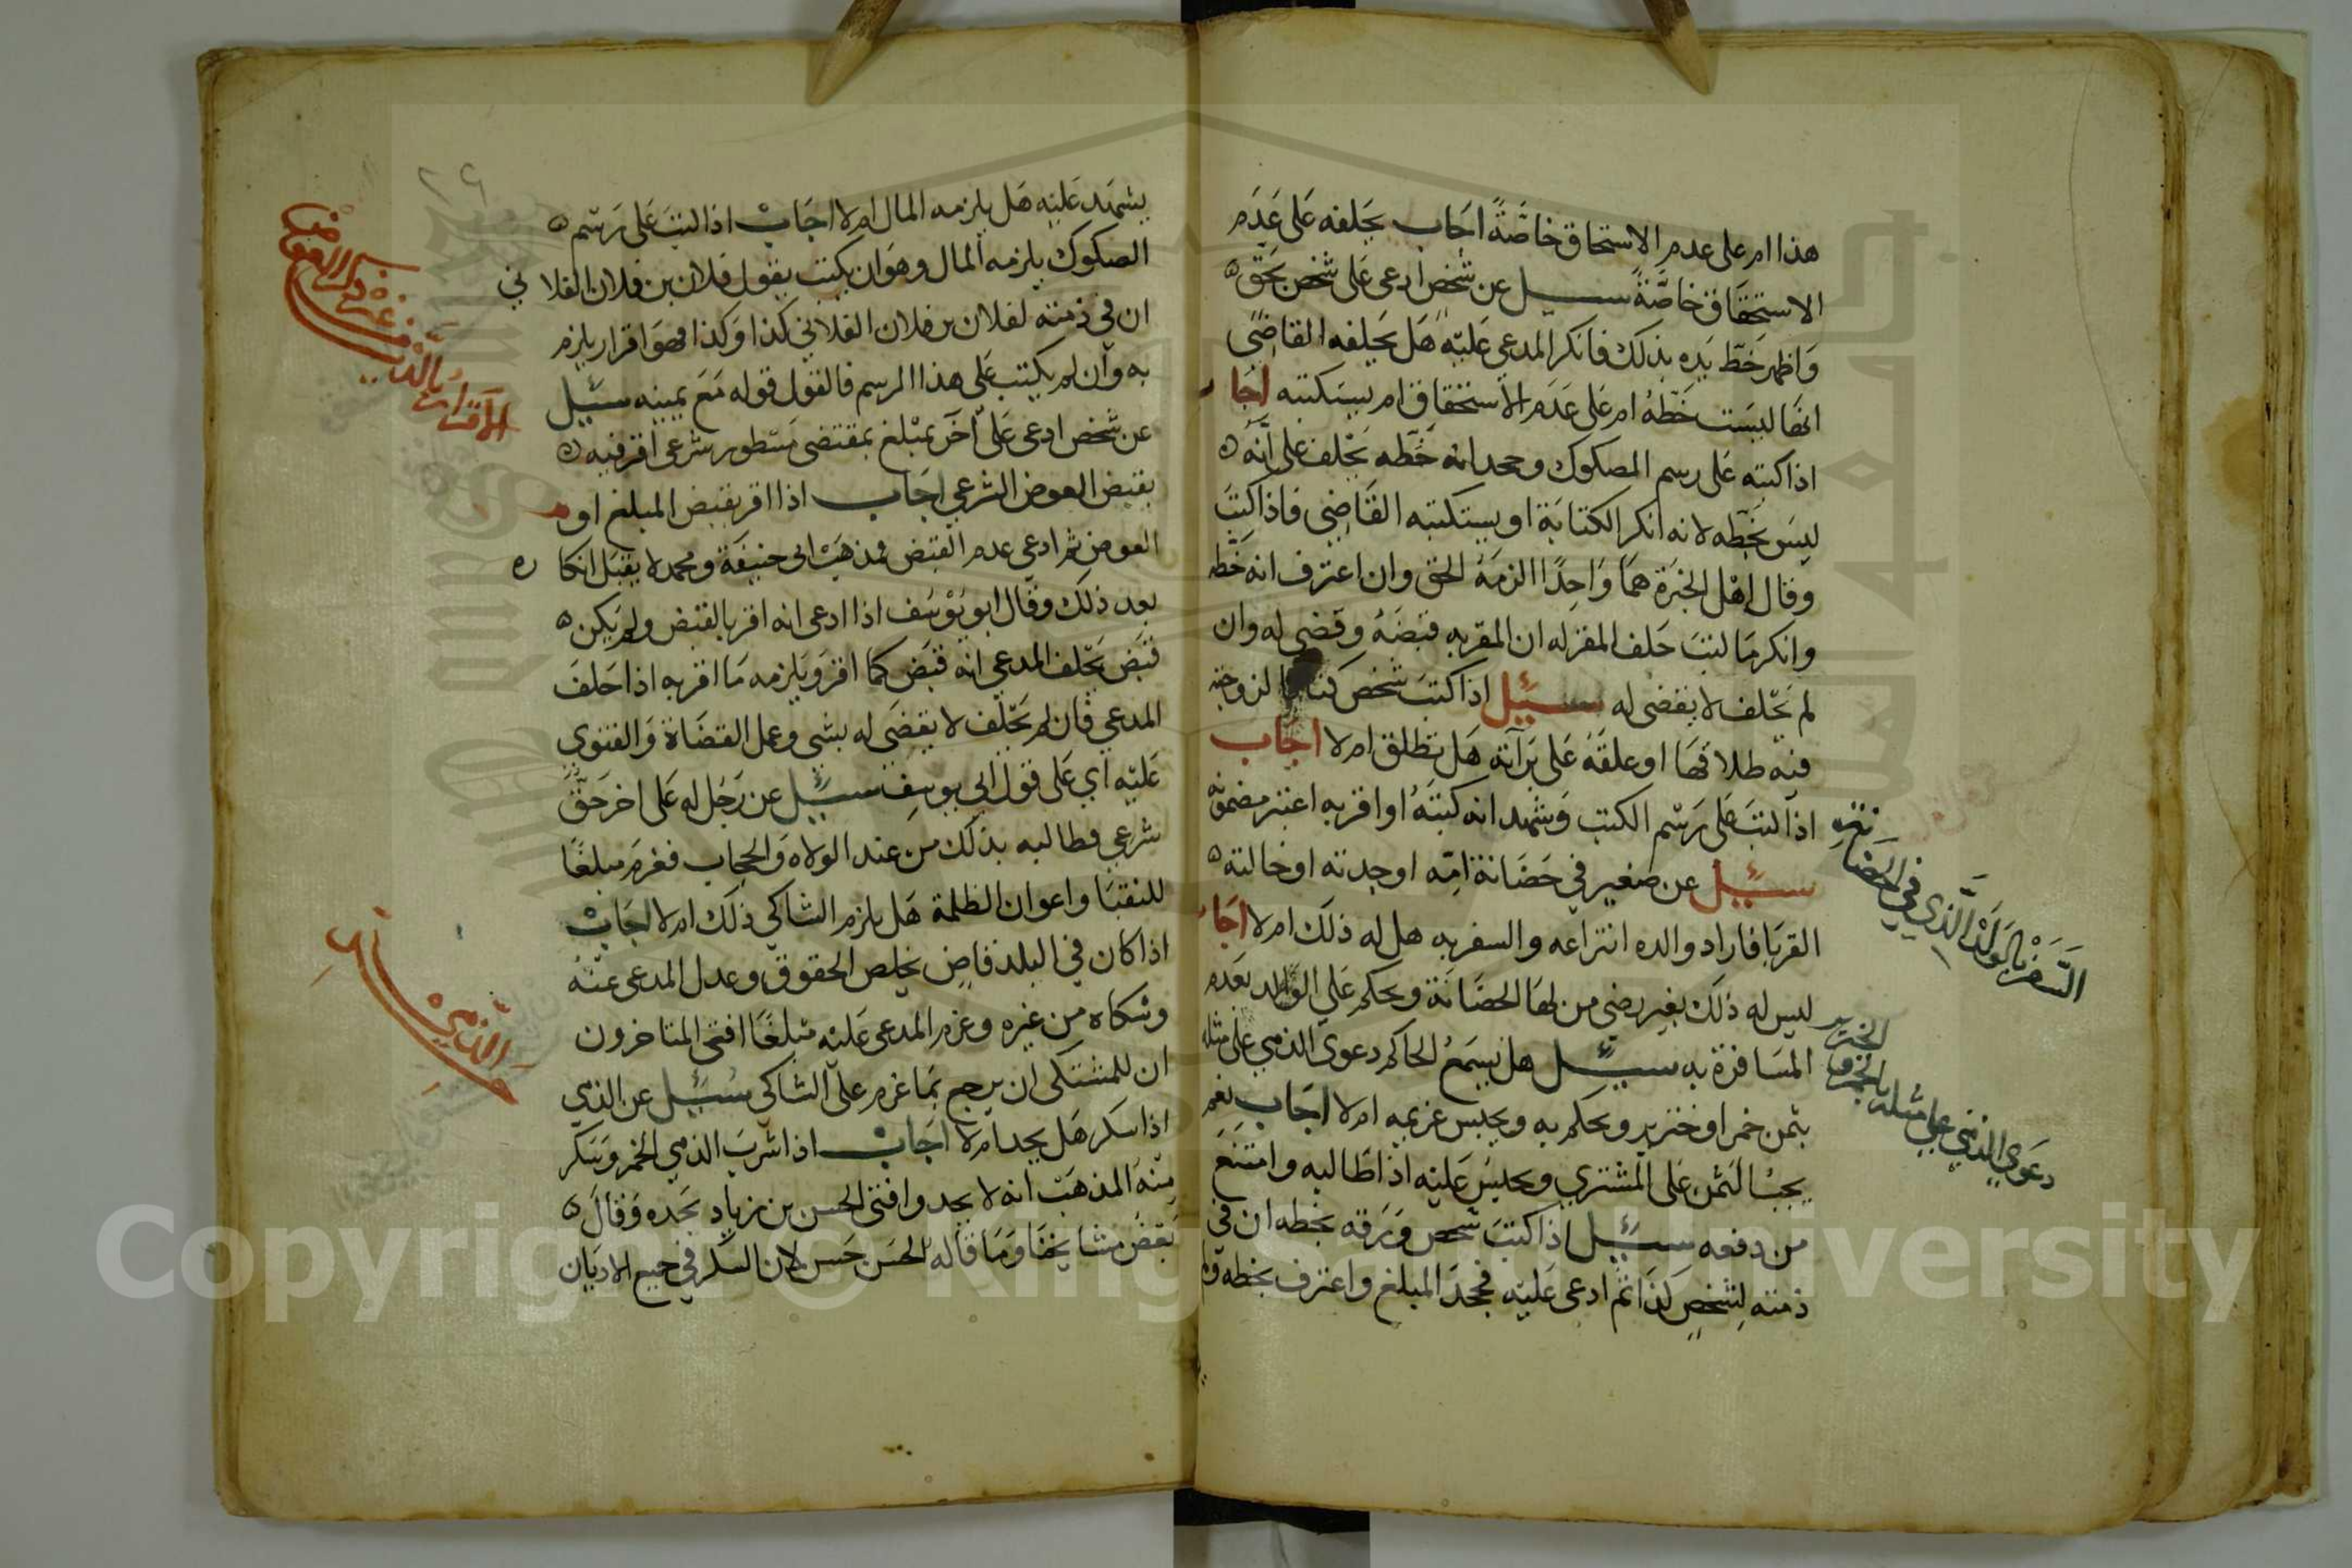 هذا ام على عدم الاستحاق خاصَّةً اجَاب يحَلفه عَلى عَدَم
الاستحقَاق خاصَّةً سيل عن شخص ادعى عَلى شخص بحَق
وَاظهر خَطّ يَده بذلك فانكر المدعي عَليْه هَل يحَلفه القاضى
انهَا ليسَت خَطّهُ ام عَلى عَدَم الاستحقاق ام يستكتبه اجَا
اذا كتبه عَلى رسم الصكوك وجحد انه خَطّه يحْلف على انَّهُ
ليسَ بخَطّه لانه انكر الكتابَة او يستكتبه القَاضِى فاذا كتبَ
وقال اهْل الخبْرَة همَا وَاحِدًا الزمَهُ الحق وان اعترف انه خَطّه
وانكر مَا كتبَ حَلف المقر له ان المقر به قبضَهُ وقضى له وان
لم يحْلف لا يقضى له سُئِل اذا كتبَ شخص كتابا لزوجته
فيْه طلاقهَا او علقَهُ عَلى برَآته هَل تطلق ام لا اجَاب
اذا كتبَ عَلى رَسْم الكتب وَشهد انه كتبَهُ او اقر به اعتبر مضمونه
سُيِل عن صَغير في حَضَانة امّه او جدته او خالته
القربَا فاراد والده انتزاعه والسفر به هل له ذلك ام لا اجَا
ليس له ذلك بغير رضى من لهَا الحضَانَة ويحكم عَلي الوَالد بعَدم
المسَافرة به سُيِل هل يسمَعُ الحاكم دعوى الذمي على مثله
بثمن خمر او خنزير ويحكم به ويحبس غريمه ام لا اجَاب نعم
يجبُ الثمن عَلى المشتري ويحبسَ عَليْه اذا طَالبه وامتنَعَ
من دفعه سُيِل اذا كتبَ شخص وَرَقه بخطه ان في
ذمته لِشخصٍ كذَا ثم ادعى عَليْه فجحدَ المبلغ واعترف بخطه ولم
السَّفَرْ بالوَلَدْ الَّذِي في الحضانة
دعوي الذمي علي مثله بالخمر و
الخنزير
٢٦
يشهَد عَليْه هَل يلزمه المال ام لا اجَابْ اذا كتبَ عَلى رَسْم
الصكوك يلزمه المال وهوَ ان يكتب يقول فلان بن فلان الفلاني
ان في ذمته لفلان بن فلان الفلاني كذا وَكذا فهوَ اقرار يلزم
به وان لم يكتب عَلى هذا الرسم فالقول قوله مَعَ يمينه سُيِل
عن شخص ادعى عَلى آخَر بمبْلغ بمقتضى مَسْطور شرعى اقر فيه
بقبض العوض الشرعي اجَاب اذا اقر بقبض المبلغ او
العوض ثم ادعي عدم القبض فمذهَبْ ابى حنيفَة ومحمد لا يقبَل انكاره
بعد ذلك وقال ابو يوْسَف اذا ادعى انه اقر بالقبض ولم يَكن
قبَض يحْلف المدعي انه قبَض كما اقر وَيلزمه مَا اقر به اذا حَلفَ
المدعي فان لم يحْلف لا يقضَى له بشي وعمل القضَاة وَالفتوي
عَليْه اي عَلى قول ابي يوسف سُيِل عن رَجُل له عَلى اخر حَقٌ
شرعي فطالبه بذلك من عند الولاه وَالحجاب فغرم مبلغًا
للنقبَا واعوان الظلمة هَل يلزم الشاكي ذلك ام لا اجَابْ
اذا كان في البلد قاضٍ يخلِص الحقوق وعدل المدعى عنْهُ
وشكاه من غيره وغرم المدعى عَليْه مبْلغًا افتى المتاخرون
ان للمشتكى ان يرجع بمَا غرم على الشاكي سُيِل عن الذمي
اذا سكر هَل يحد ام لا اجَابْ اذا شربَ الذمي الخمر وَسَكر
منْهُ المذهَبْ انه لا يحد وافتى الحسن بن زياد بحَده وَقالَ
بَعْض مشايخنَا وَمَا قاله الحسَن حَسن لان السكر في جميع الاديَان
Copyright © King Saud University